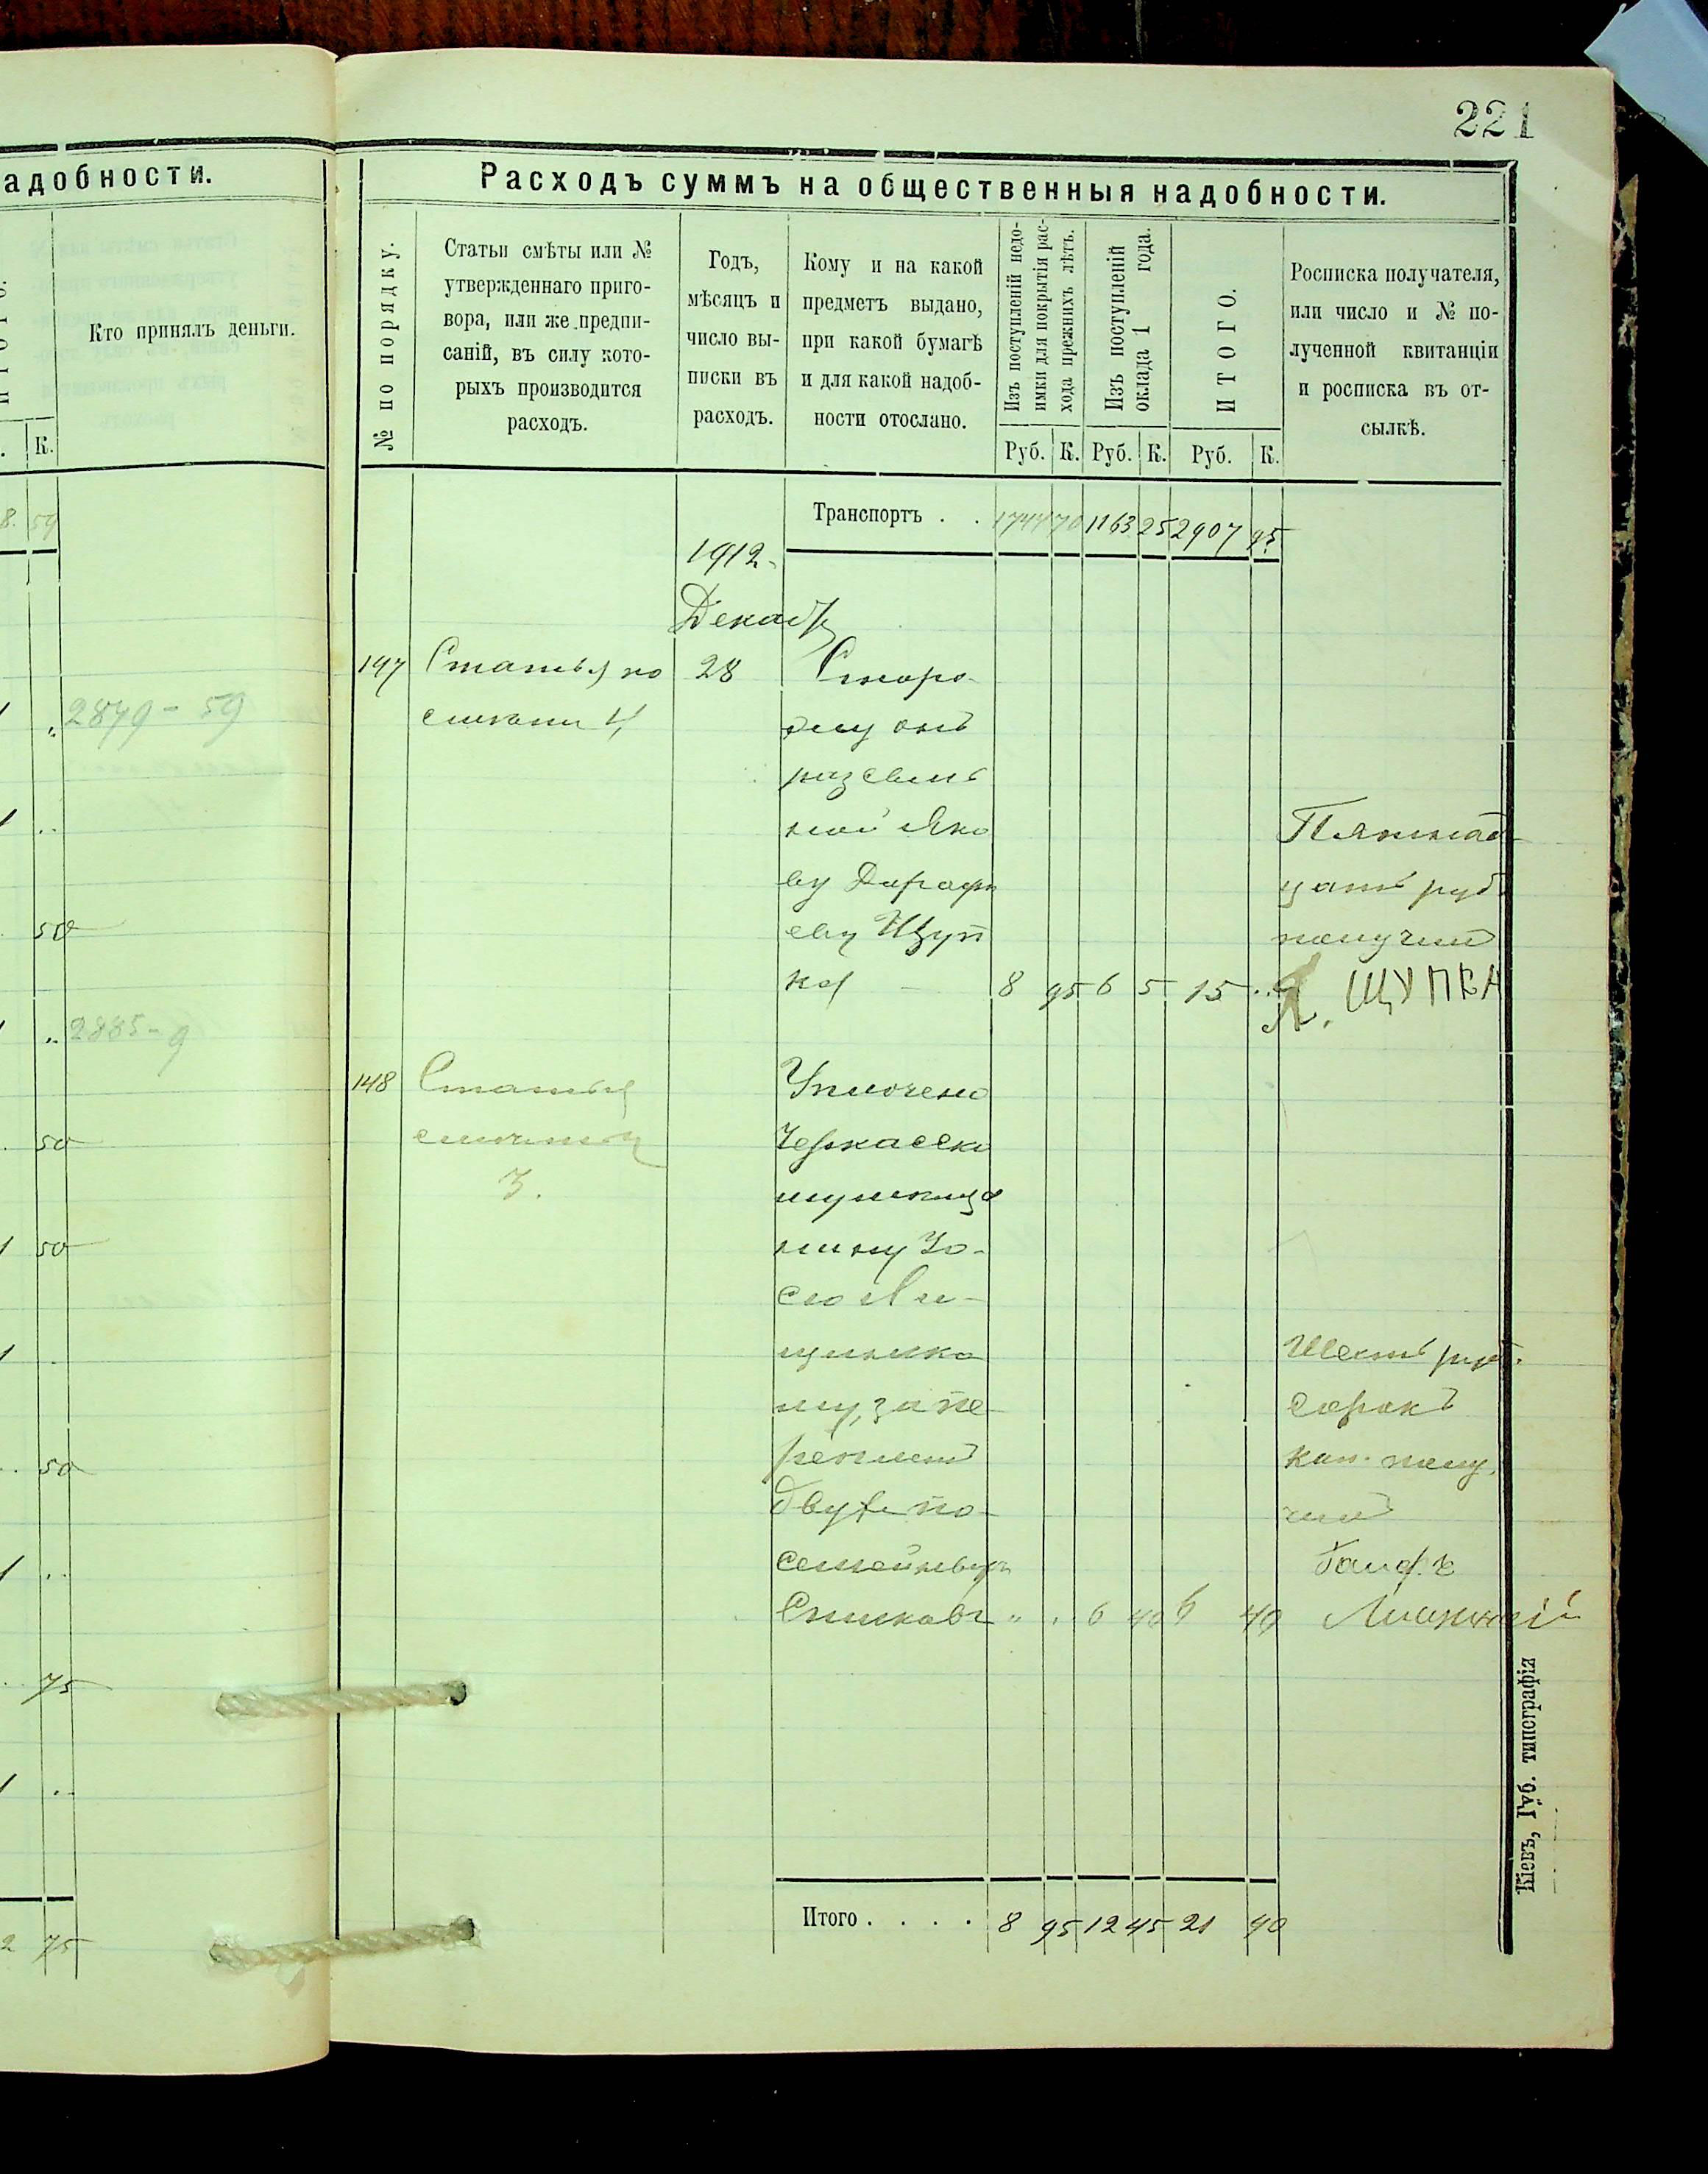 адобности.
Кто принялъ деньги.
К.
59
2879 - 59
50
2885 - 9
50
50
50
75
2 75
221
Расходъ суммъ на общественныя надобности.
№ по порядку.
Статьи смѣты или №
утвержденнаго приго-
вора, или же предпи-
саній, въ силу кото-
рыхъ производится
расходъ.
Годъ,
мѣсяцъ и
число вы-
писки въ
расходъ.
Кому и на какой
предметъ выдано,
при какой бумагѣ
и для какой надоб-
ности отослано.
Изъ поступленій недо-
имки для покрытія рас-
хода прежнихъ лѣтъ.
Изъ поступленій
оклада 1 года.
ИТОГО.
Росписка получателя,
или число и № по-
лученной квитанціи
и росписка въ от-
сылкѣ.
Руб. К. Руб. К. Руб. К.
Транспортъ . . 1744 70 1163 25 2907 95
1912
Декабр
147 Статья по 28 Сторо-
жу
ной Яко
ву
еву Щуп
ка 8 95 6 5 15 ..
Пятнад
цать руб
получил
Я. ЩУПКА
148 Статья
3.
Уплочено
Черкасско
му мѣща
нину Іо-
сю Ли-
му, за пе-
реплет
двухъ по-
семейныхъ
Списковъ " . 6 40 6 40
Шесть руб.
сорокъ
коп. полу
чил
Итого . . . . 8 95 12 45 21 40
Кіевъ, Губ. типографія